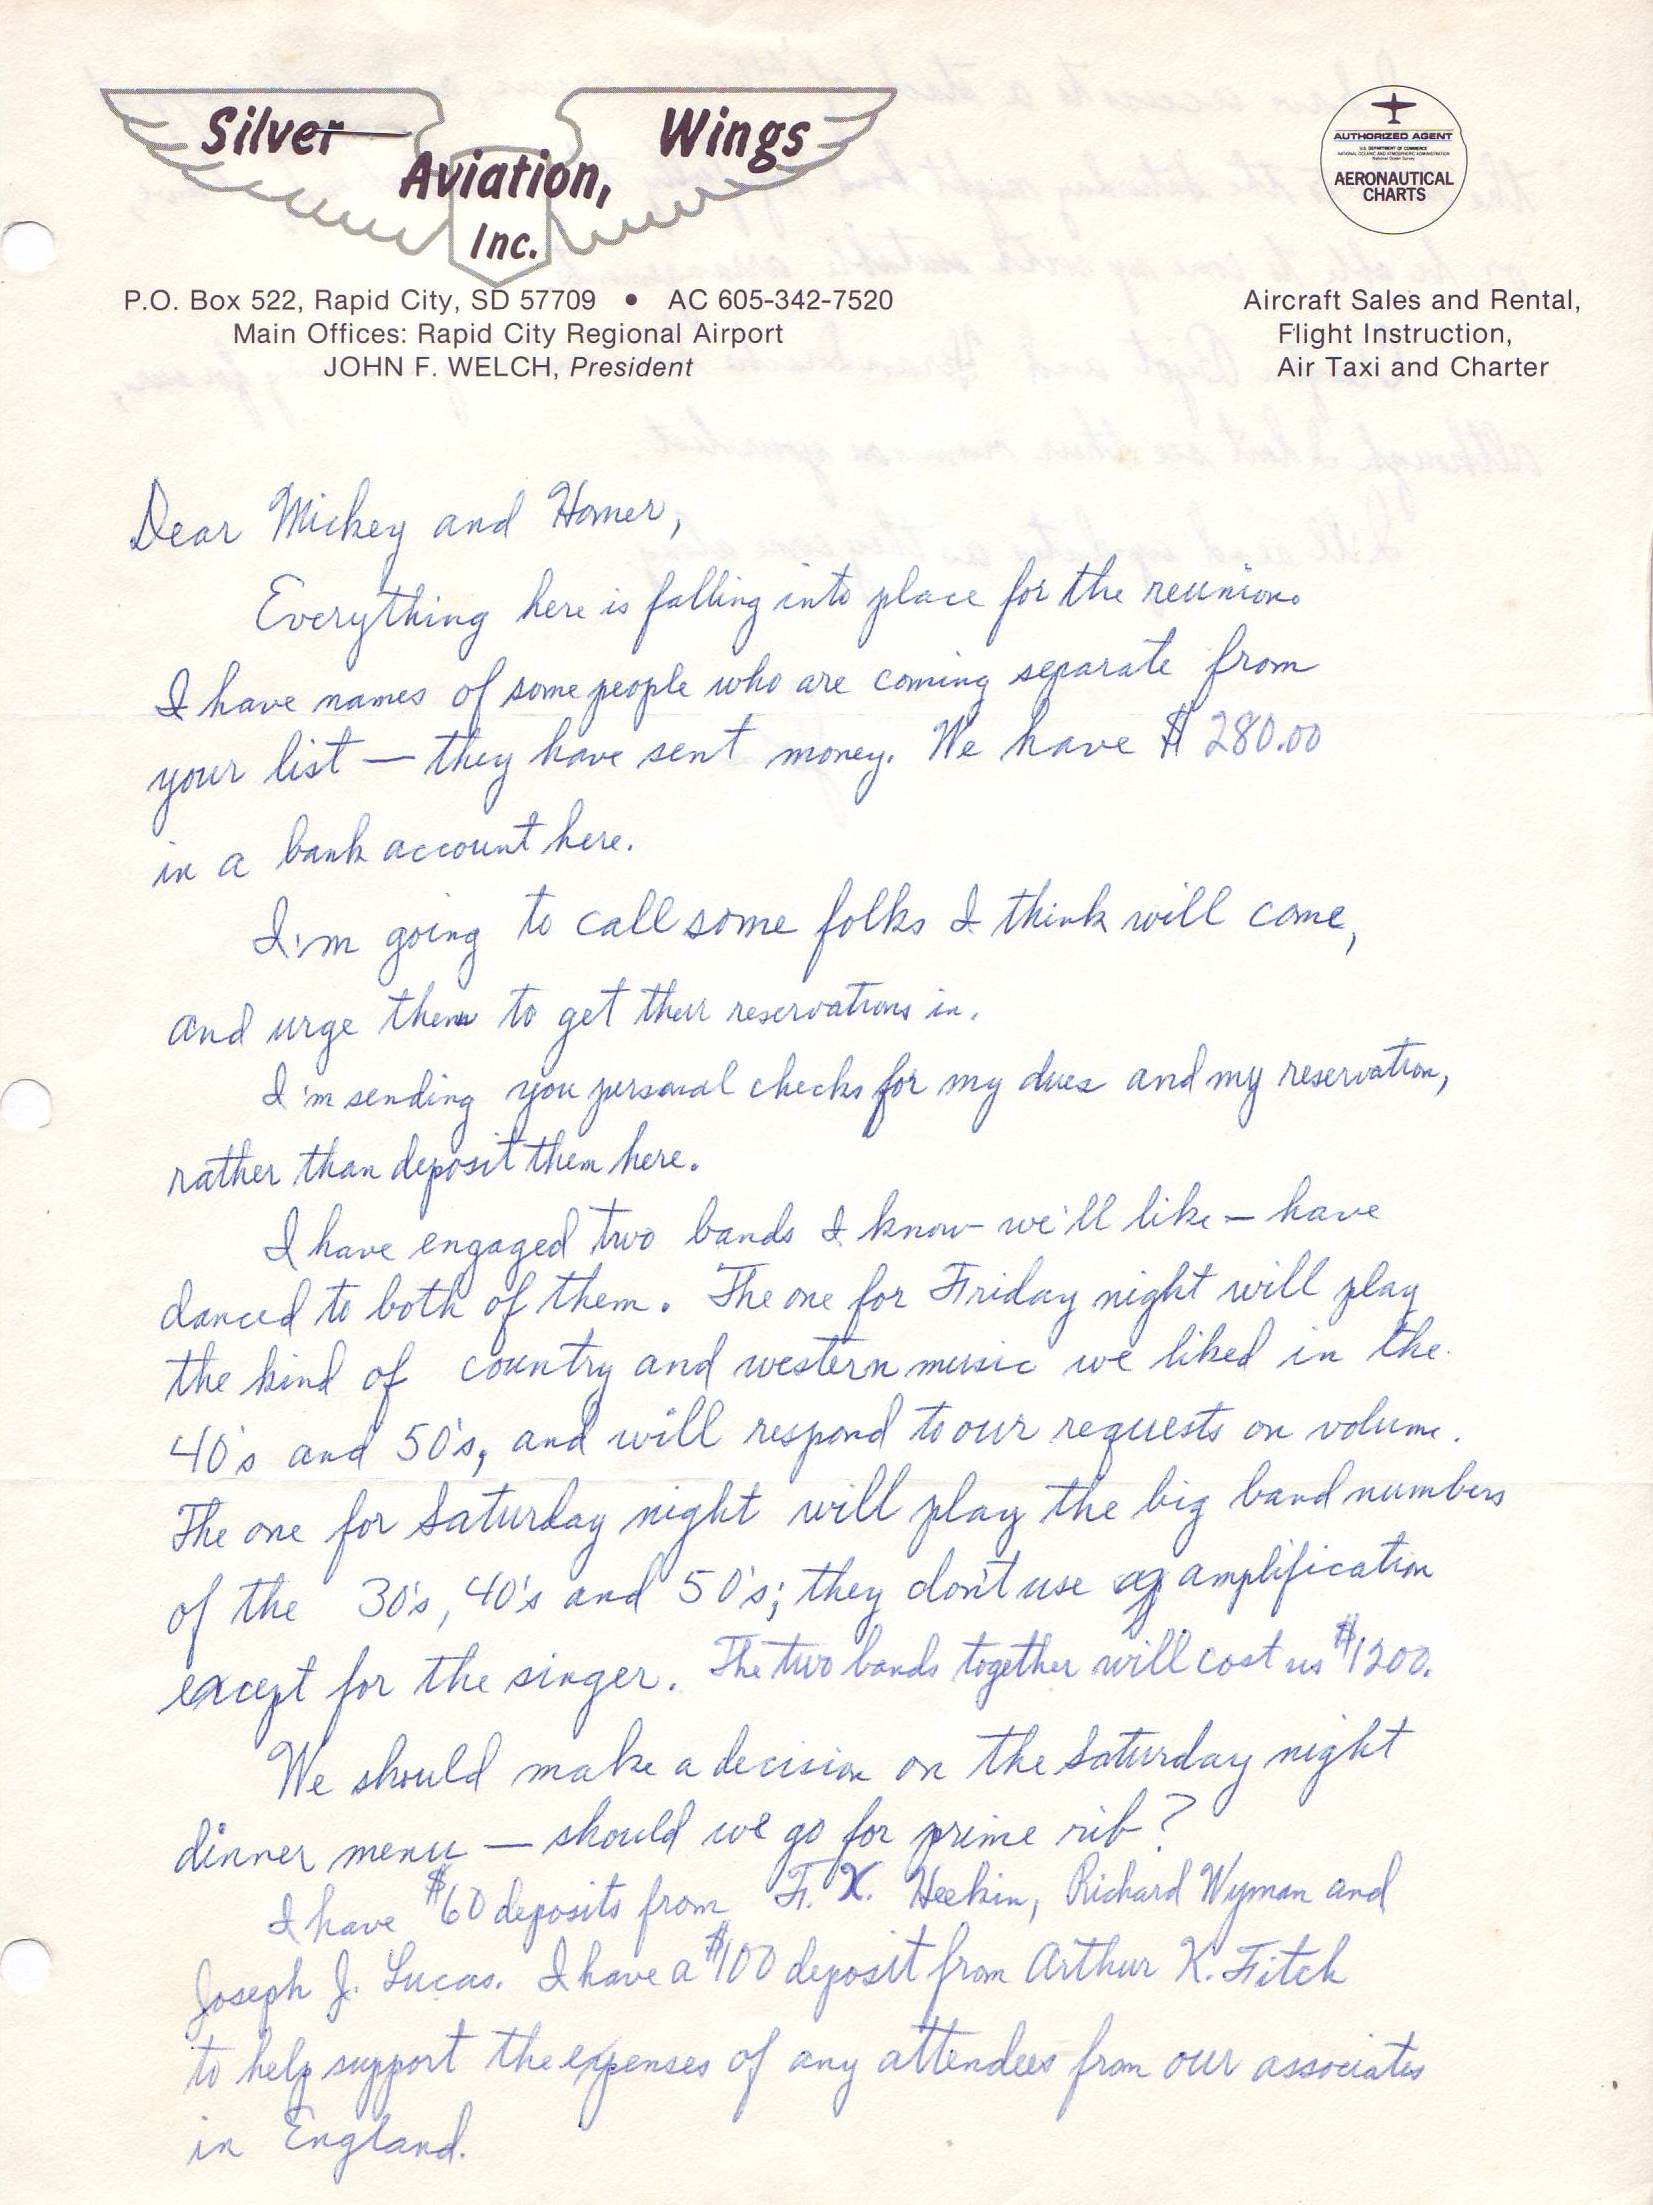 Silver Wings
Aviation,
Inc.
P.O. Box 522, Rapid City, SD 57709 • AC 605-342-7520
Main Offices: Rapid City Regional Airport
JOHN F. WELCH, President
AUTHORIZED AGENT
U.S. DEPARTMENT OF COMMERCE
NATIONAL OCEANIC AND ATMOSPHERIC ADMINISTRATION
National Ocean Survey
AERONAUTICAL
CHARTS
Aircraft Sales and Rental,
Flight Instruction,
Air Taxi and Charter
Dear Mickey and Homer,
Everything here is falling into place for the reunion.
I have names of some people who are coming separate from
your list — they have sent money. We have $280.00
in a bank account here.
I'm going to call some folks I think will come,
and urge them to get their reservations in.
I'm sending you personal checks for my dues and my reservation,
rather than deposit them here.
I have engaged two bands I know we'll like — have
danced to both of them. The one for Friday night will play
the kind of country and western music we liked in the
40's and 50's, and will respond to our requests on volume.
The one for Saturday night will play the big band numbers
of the 30's, 40's and 50's; they don't use amplification
except for the singer. The two bands together will cost us $1200.
We should make a decision on the Saturday night
dinner menu — should we go for prime rib?
I have $60 deposits from F. X. Heekin, Richard Wyman and
Joseph J. Lucas. I have a $100 deposit from Arthur K. Fitch
to help support the expenses of any attendees from our associates
in England.